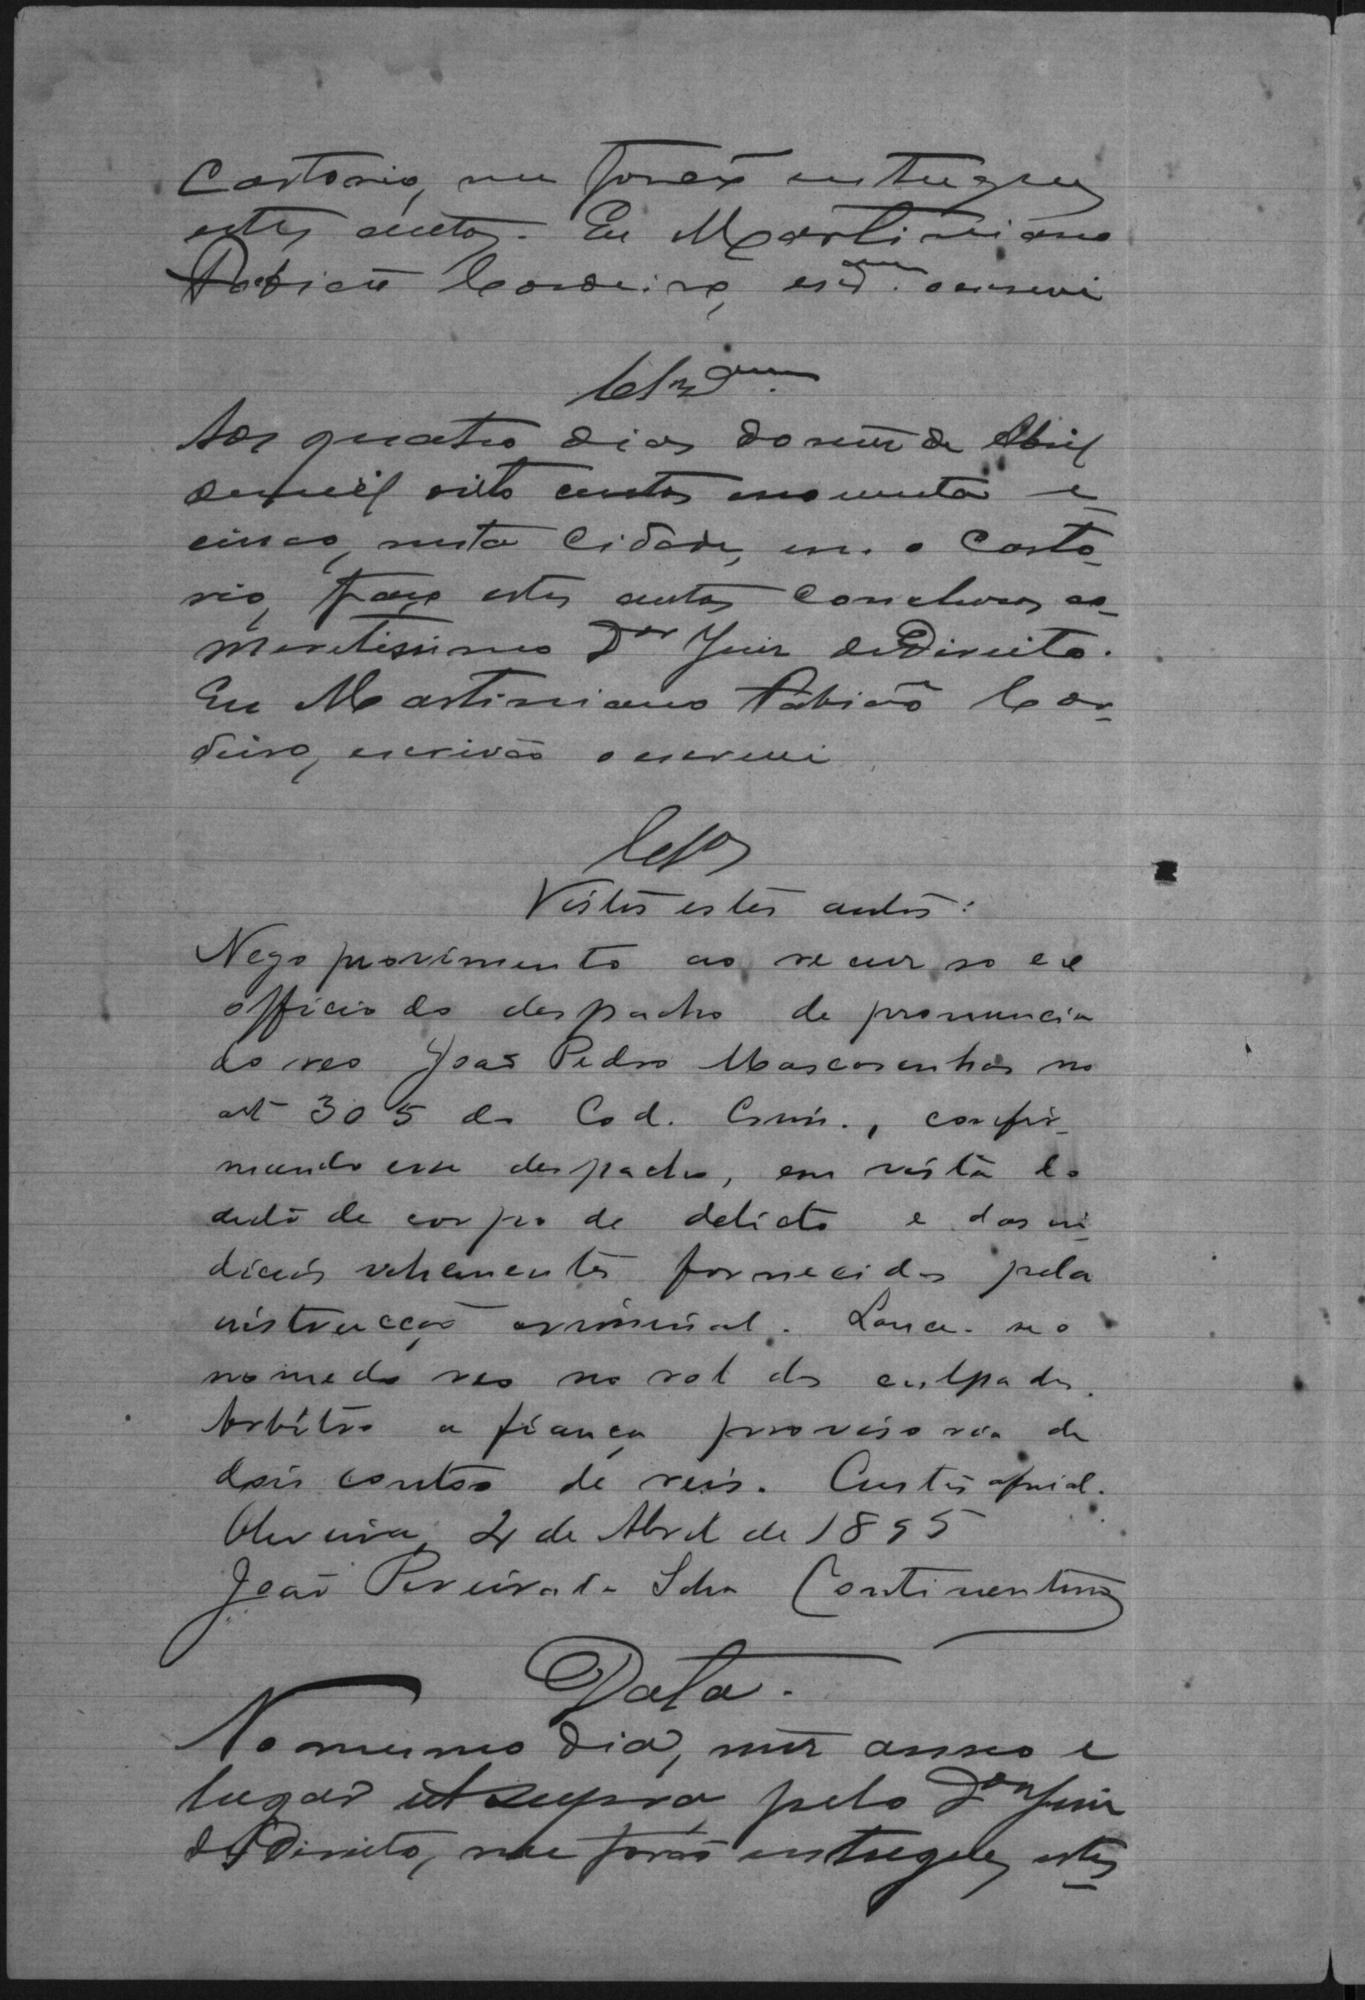 Cartorio, me forão entregues
estes autos. Eu Martiniano
Fabião Cordeiro, escr.am o escrevi
Clzam.
Aos quatro dias do mez de Abril
de mil oito centos e noventa e
cinco, nesta Cidade, em o Carto-
rio, faço estes autos conclusos ao
meretissimo Dor Juiz de Direito.
Eu Martiniano Fabião Cor-
deiro, escrivão o escrevi
Clsos
Vistos estes autos:
Nego provimento ao recurso ex
officio do despacho de pronuncia
do reo João Pedro Mascarenhas no
art 305 do Cod. Crim., confir-
mando esse despacho, em vista do
auto de corpo de delicto e dos in-
dicios vehementes fornecidos pela
instrucção criminal. Lance-se o
nome do reo no rol dos culpados.
Arbitro a fiança provisoria de
dois contos de reis. Custas afinal.
Oliveira, 4 de Abril de 1895
João Pereira da Silva Continentino
Data.
No mesmo dia, mez anno e
lugar ut supra, pelo Dor Juiz
de Direito, me forão entregues estes